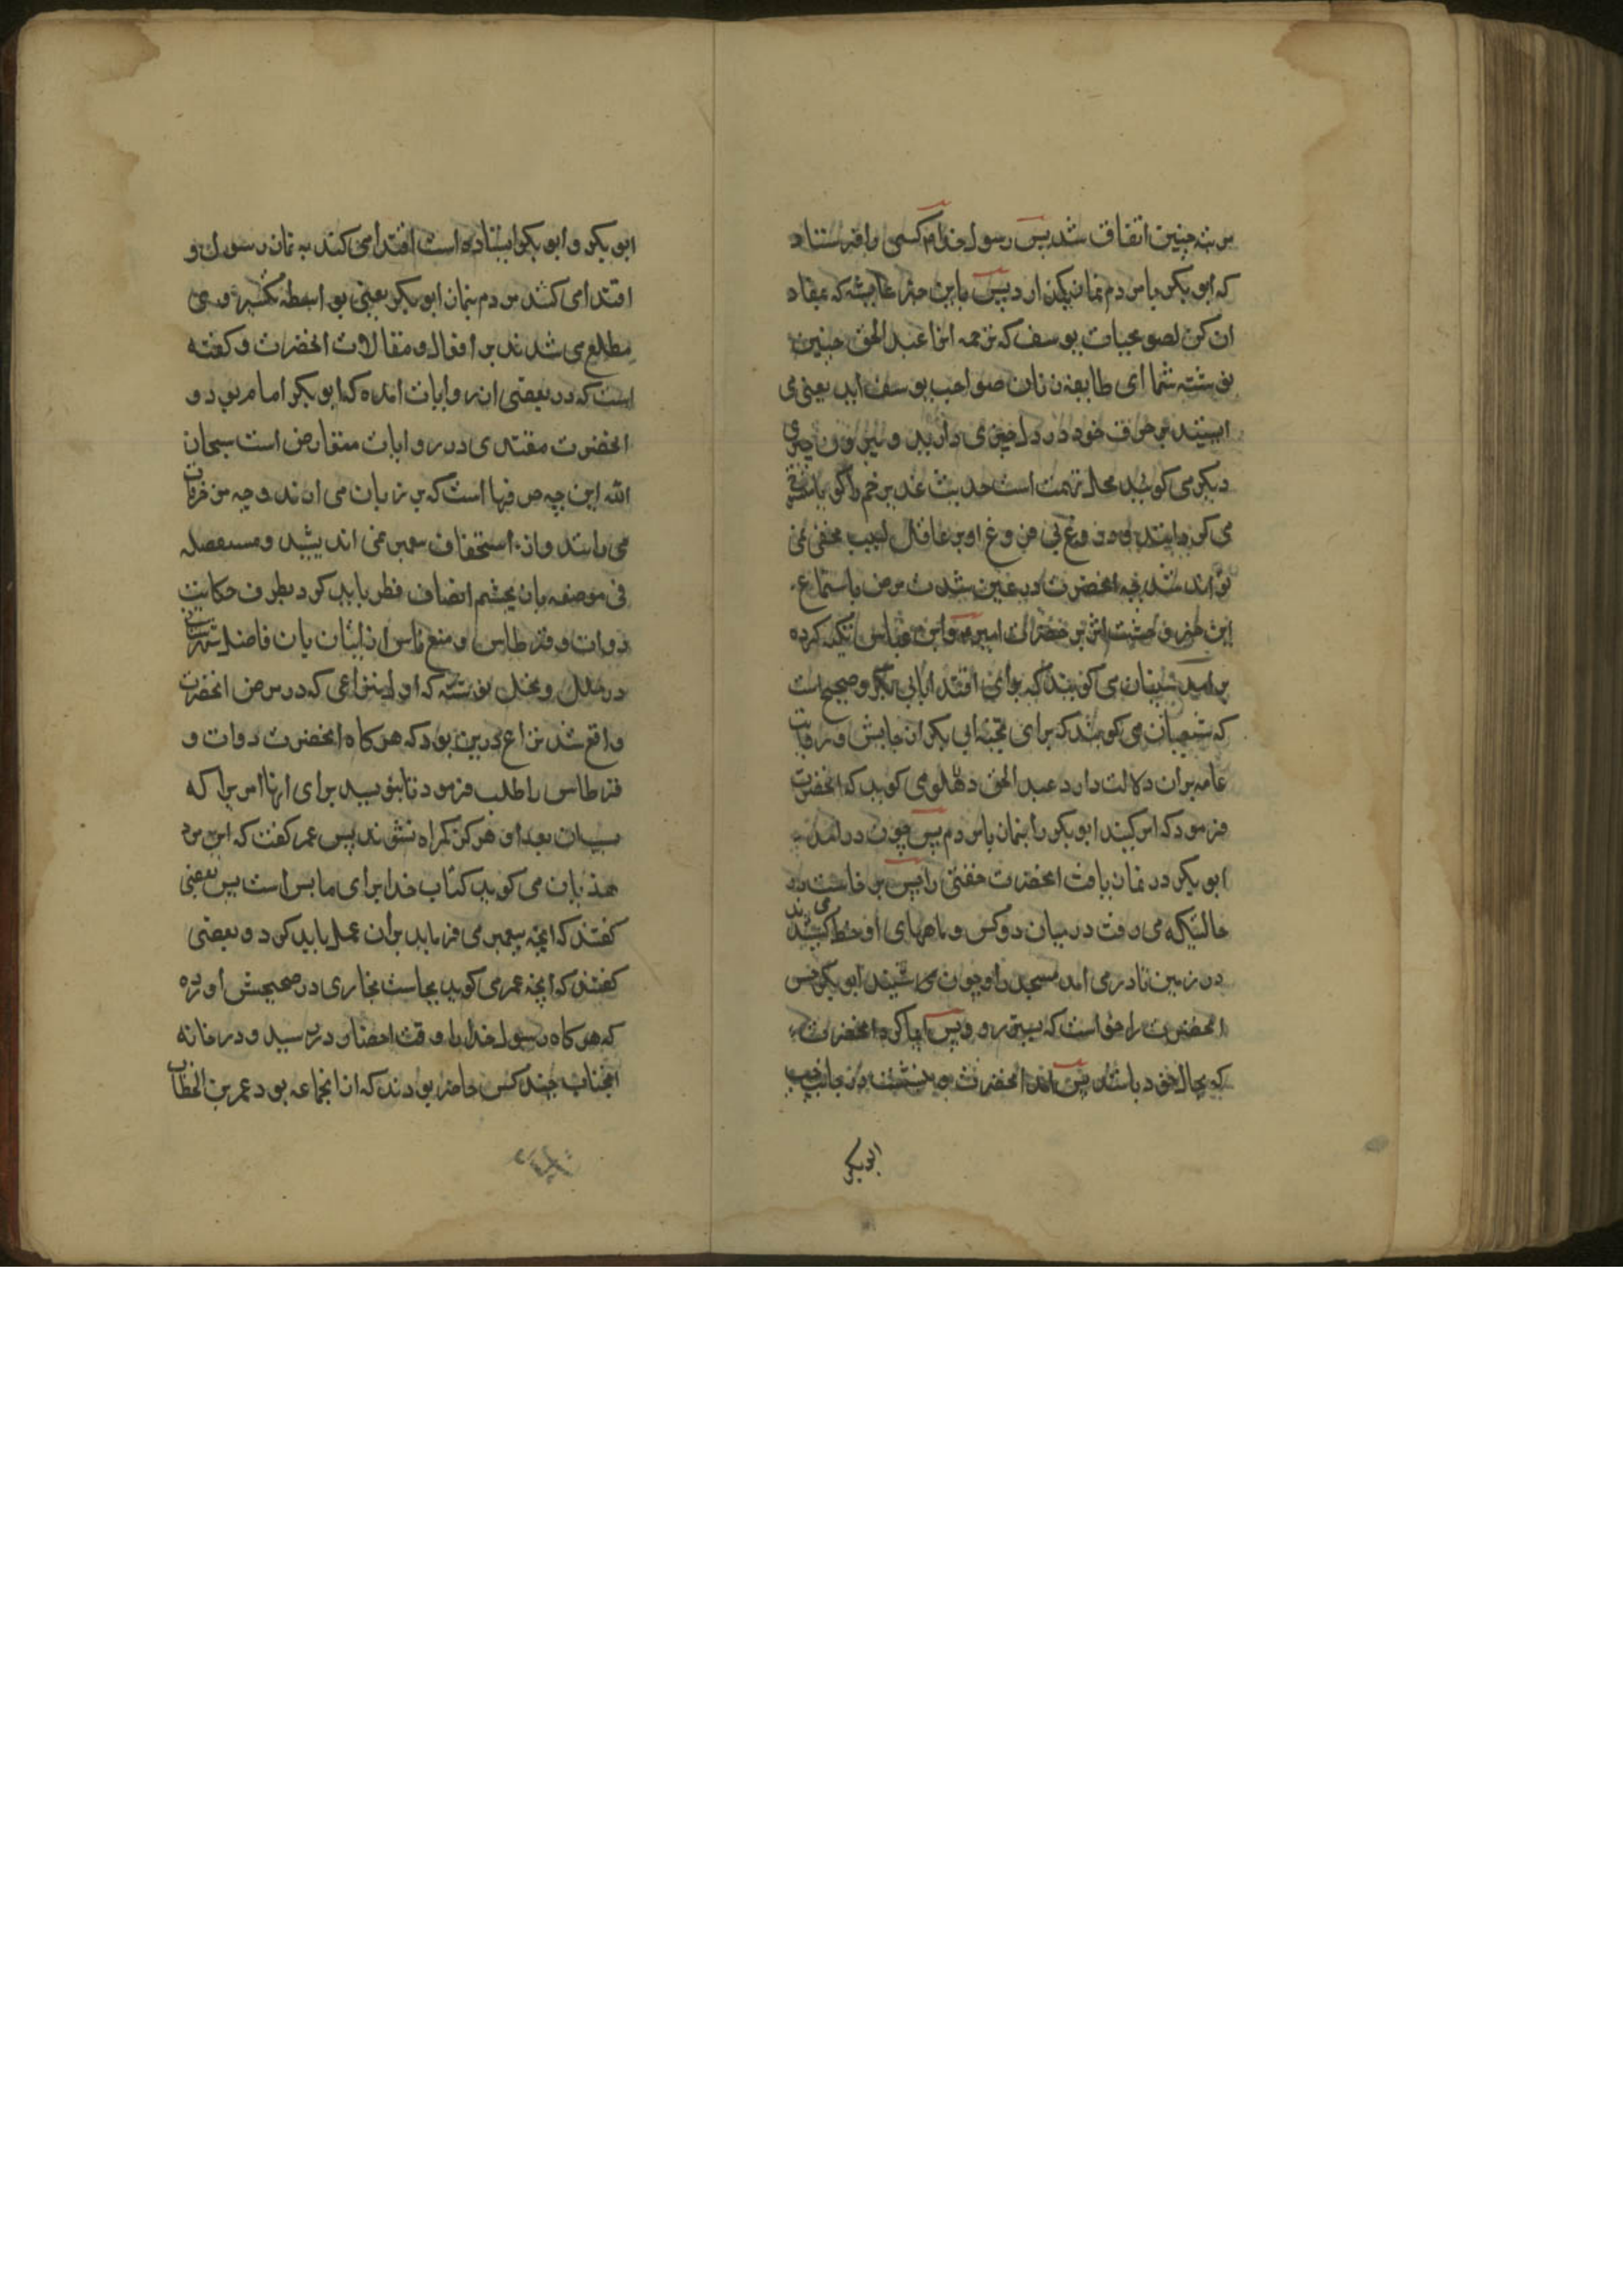 مرتبه چنین اتفاق شد پس رسول خدا کسی را فرستاد
که ابوبکر با مردم نماز بگذارد پس باین حضرا عایشه که بمفاد
ان کن لصویحبات یوسف که ترجمه انرا عبد الحق چنین
نوشته شما ای طایفه زنان صواحب یوسف اید یعنی می
خود در دل چیزی دارید و بیرون چیزی
دیکر می کویید محل تهمت است حدیث غدیر خم را کویا
می کو دروغ بی فروغ او بر عاقل لبیب مخفی نمی
تواند شد چه انحضرت در عین شدت مرض باستماع
این خبر وحشت اثر بر حضرات امیر و ابن عباس تکیه کرده
بر امد سنیان می کویند که برای اقتدا بابی بکر و صحیح است
که شیعیان می کویند که برای تنحیه ابی بکر از جایش و روایت
عامه بران دلالت دارد عبد الحق دهلوی می کوید که انحضرت
فرمود که امر کنید ابوبکر را بنماز با مردم پس چون درامد
ابوبکر در نماز یافت انحضرت خفتی را پس بر خاست در
حالتیکه می رفت در میان دو کس و پاهای او خط می کشیدند
در زمین تا درمی امد مسجد را و چون شنید ابوبکر حس
انحضرت را خواست که بیتر رود پس ایما کرد انحضرت
که بحال خود باشد پس امد انحضرت و بنشست در جانب چپ
ابوبکر
ابوبکر و ابوبکر ایستاده است اقتدا می کند به نماز رسول و
اقتدا می کنند مردم بنماز ابوبکر یعنی بواسطه تکبیر وی
مطلع می شدند بر افعال و مقالات انحضرت و کفته
است که در بعضی از روایات امده که ابوبکر امام بود و
انحضرت مقتدی در روایات متعارض است سبحان
الله این چه حرفها است که بر زبان می ارند و چه مزخرفات
می بافند و از استخفاف پیغمبر نمی اندیشید و مسبفصله
فی موضعه بان بچشم انصاف نظر باید کرد بطرف حکایت
دوات و قرطاس و منع ناس از اتیان بان فاضل شهرستانی
در ملل و نحل نوشته که اول نزاعی که در مرض انحضرت
واقع شد نزاع درین بود که هرکاه انحضرت دوات و
قرطاس را طلب فرمود تا بنویسد برای انها امریرا که
بسبب ان بعد او هرکز کمراه نشوند پس عمر کفت که این مرد
هذیان می کوید کتاب خدا برای ما بس است پس بعضی
کفتند که انچه پیغمبر می فرماید بران عمل باید کرد و بعضی
کفتند که انچه عمر می کوید بجاست بخاری در صحیحش اورده
که هرکاه رسول خدا را وقت احضار در رسید و در خانه
انجناب چند کس حاضر بودند که از انجماعه بود عمر بن الخطاب